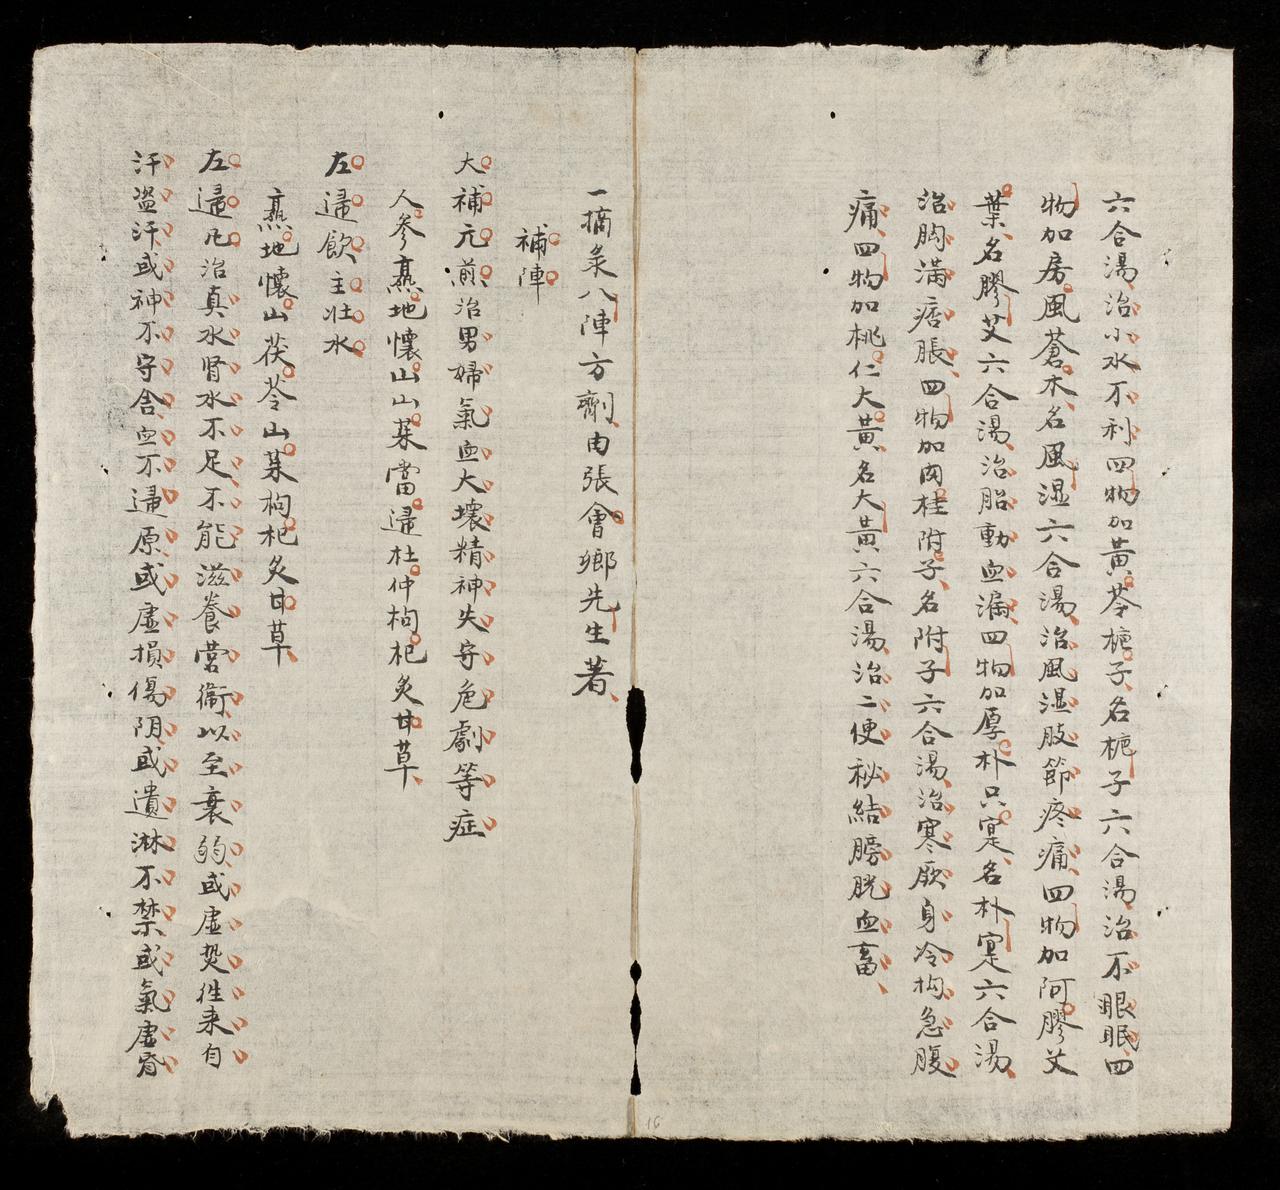 六合湯治小水不利四物加黃芩梔子名梔子六合湯治不眼眠四
物加房風蒼木名風湿六合湯治風湿肢節疼痛四物加阿膠艾
葉名膠艾六合湯治胎動血漏四物加厚朴只寔名朴寔六合湯
治胸满痞脹四物加肉桂附子名附子六合湯治寒厥身冷构急腹
痛四物加桃仁大黃名大黃六合湯治二便秘結膀胱血畜
一摘彔八陣方劑由張會鄉先生著
補陣
大補元煎治男婦氣血大壞精神失守危劇等症
人參熹地懷山山茱當遈杜仲枸杞炙甘草
左遈飲主壯水
熹地懷山茯苓山茱枸杞炙甘草
左遈凡治真水肾水不足不能滋養营衛以至衰弱或虛烖徃来自
汗盗汗或神不守舍血不遈原或虛損傷阴或遺淋不禁或氣虛昏
16